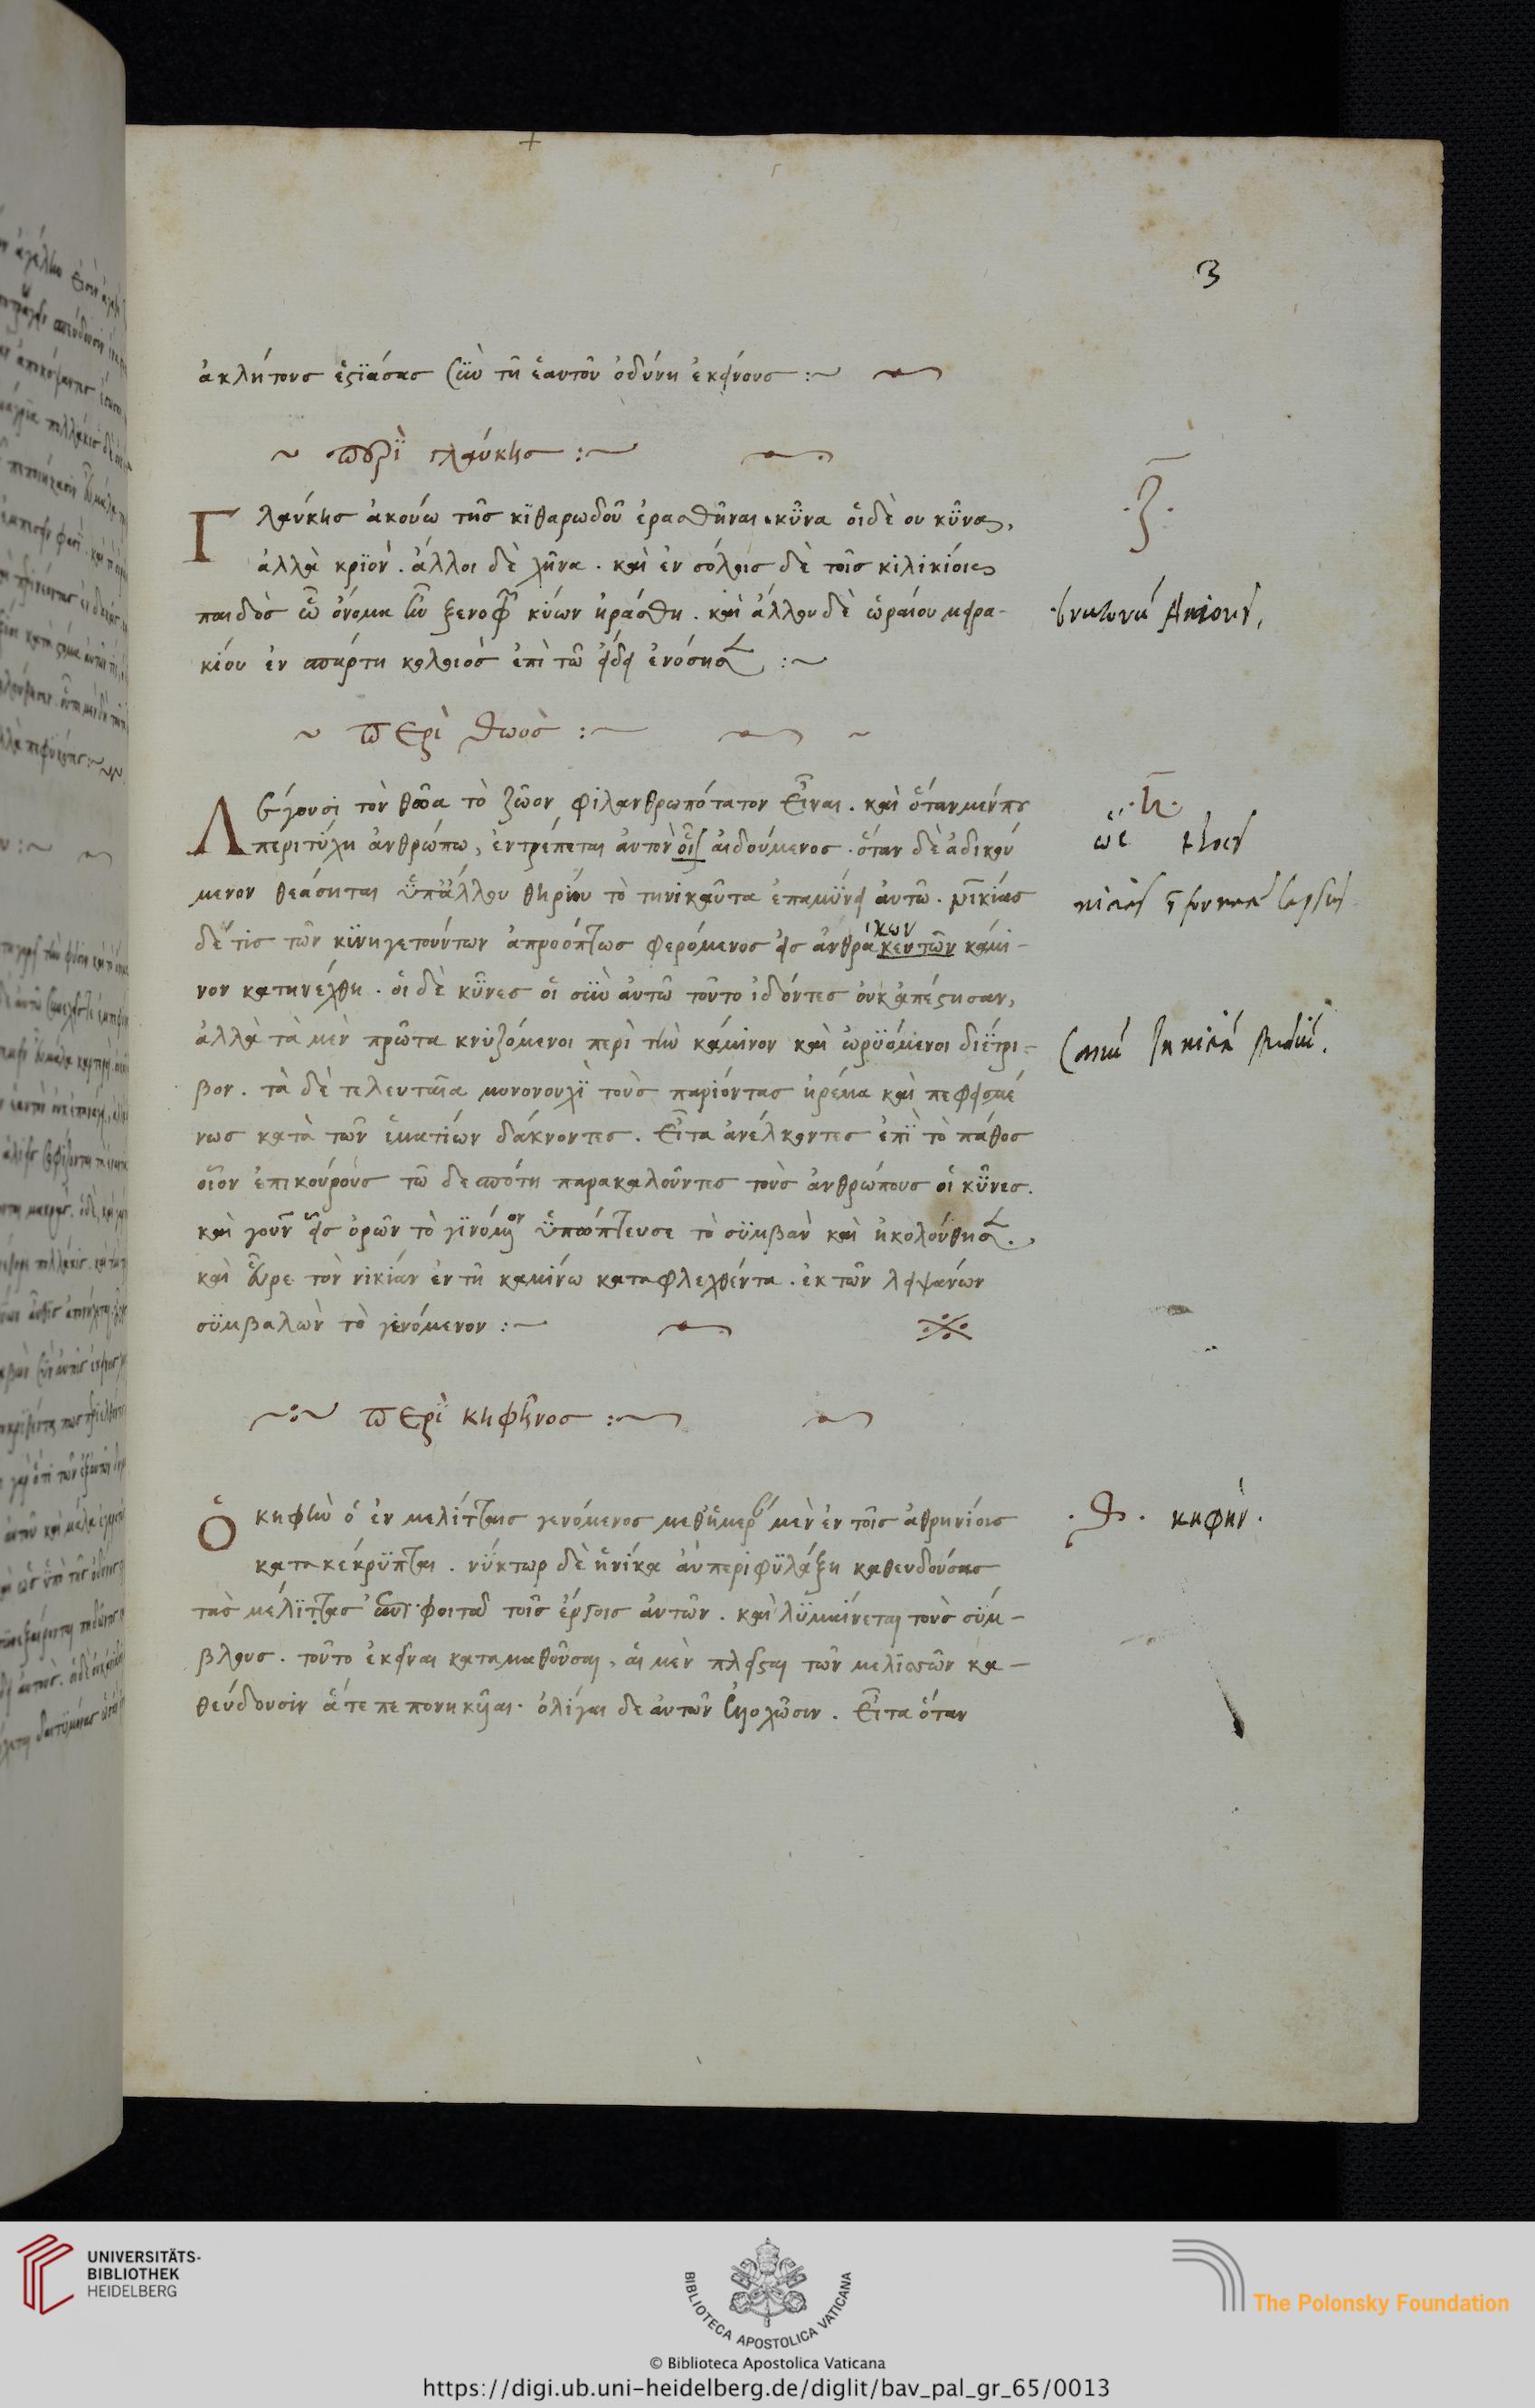 3
ἀκλήτους ἑστιάσας σὺν τῇ ἑαυτοῦ ὀδύνῃ ἐκείνους :~
~ περὶ γλαύκης :~
·ζ·
Γλαύκης ἀκούω τῆς κιθαρωδοῦ ἐρασθῆναι κύνα οἱ δὲ ου κῦνα,
ἀλλὰ κριὸν. ἄλλοι δὲ χῆνα. καὶ ἐν σόλοις δὲ τοῖς κιλικίοις
παιδὸς ὧ ὄνομα ἦν ξενοφῶν κύων ἠράσθη. καὶ ἄλλου δὲ ὡραίου μειρα-
κίου ἐν σπάρτη κολοιὸς ἐπὶ τῶ εἴδει ἐνόσησε :~
~ περὶ θωὸς :~ ~
·η·
Λέγουσι τὸν θῶα τὸ ζῶον φιλανθρωπότατον εἶναι. καὶ ὅταν μέν που
περιτύχη ἀνθρώπω, ἐντρέπεται αὐτὸν οἷ αἰδούμενος. ὅταν δὲ ἀδικού
μενον θεάσηται ὑπ' ἄλλου θηρίου τὸ τηνικαῦτα ἐπαμύνει αὐτῶ. νικίας
δέ τις τῶν κυνηγετούντων ἀπροόπτως φερόμενος εἰς ἀνθρακευτῶν κάμι-
νον κατηνέχθη. οἱ δὲ κῦνες οἱ σὺν αὐτῶ τοῦτο ἰδόντες οὐκ ἀπέστησαν,
ἀλλὰ τὰ μὲν πρῶτα κνυζόμενοι περὶ τὴν κάμινον καὶ ὠρυόμενοι διέτρι-
βον. τὰ δὲ τελευταῖα μονονουχὶ τοὺς παριόντας ἠρέμα καὶ πεφεισμέ
νως κατὰ τῶν ἱματίων δάκνοντες. εἶτα ἀνέλκοντες ἐπὶ τὸ πάθος
οἷον ἐπικούρους τῶ δεσπότη παρακαλοῦντες τοὺς ἀνθρώπους οἱ κῦνες.
καὶ γοῦν εἷς ὁρῶν τὸ γινόμενον ὑπώπτευσε τὸ συμβὰν καὶ ἠκολούθησε.
καὶ εὗρε τὸν νικίαν ἐν τῆ καμίνω καταφλεχθέντα. ἐκ τῶν λειψάνων
συμβαλὼν τὸ γενόμενον :~
~:~ περὶ κηφῆνος :~
·θ· κηφήν.
Ὁ κηφὴν ὁ ἐν μελίτταις γενόμενος μεθ' ἡμέραν μὲν ἐν τοῖς ἀθρηνίοις
κατακέκρυπται. νύκτωρ δὲ ἡνίκα ἂν περιφυλάξη καθευδούσας
τὰς μελίττας ἐπιφοιτᾶ τοῖς ἔργοις αὐτῶν. καὶ λυμαίνεται τοὺς σύμ-
βλους. τοῦτο ἐκεῖναι καταμαθοῦσαι, αἱ μὲν πλεῖσται τῶν μελισσῶν κα-
θεύδουσιν ἅτε πεπονηκυῖαι. ὀλίγαι δε αὐτῶν ἐλλοχῶσιν. εἶτα ὅταν
UNIVERSITÄTS-
BIBLIOTHEK
HEIDELBERG
BIBLIOTECA APOSTOLICA VATICANA
The Polonsky Foundation
© Biblioteca Apostolica Vaticana
https://digi.ub.uni-heidelberg.de/diglit/bav_pal_gr_65/0013